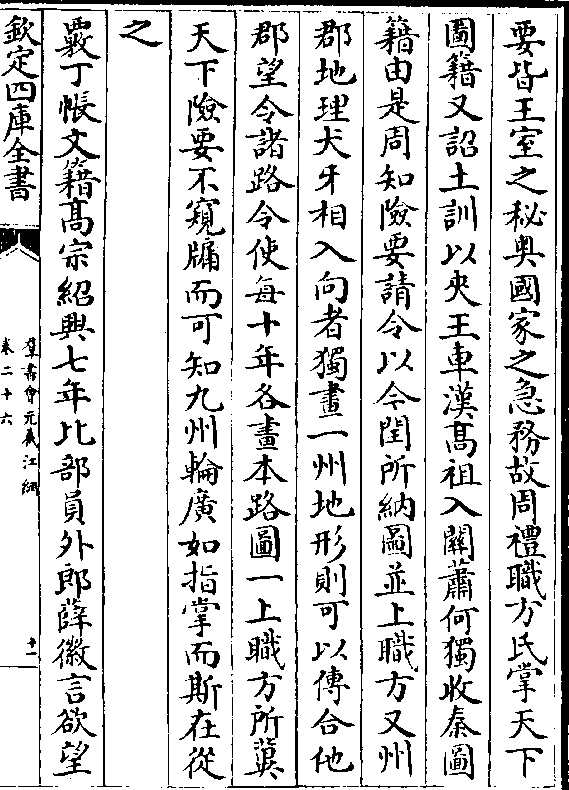 要皆王室之秘奥國家之急務故周禮職方氏掌天下
圖籍又詔土訓以夾王車漢髙祖入闗蕭何獨收秦圖
籍由是周知險要請令以今閏所納圖並上職方又州
郡地理犬牙相入向者獨畫一州地形則可以傅合他
郡望令諸路令使每十年各畫本路圖一上職方所冀
天下險要不窺牖而可知九州輪廣如指掌而斯在從
之
覈丁帳文籍髙宗紹興七年比部員外郎薛徽言欲望
欽定四庫全書
羣書會元截江網
卷二十六
十一